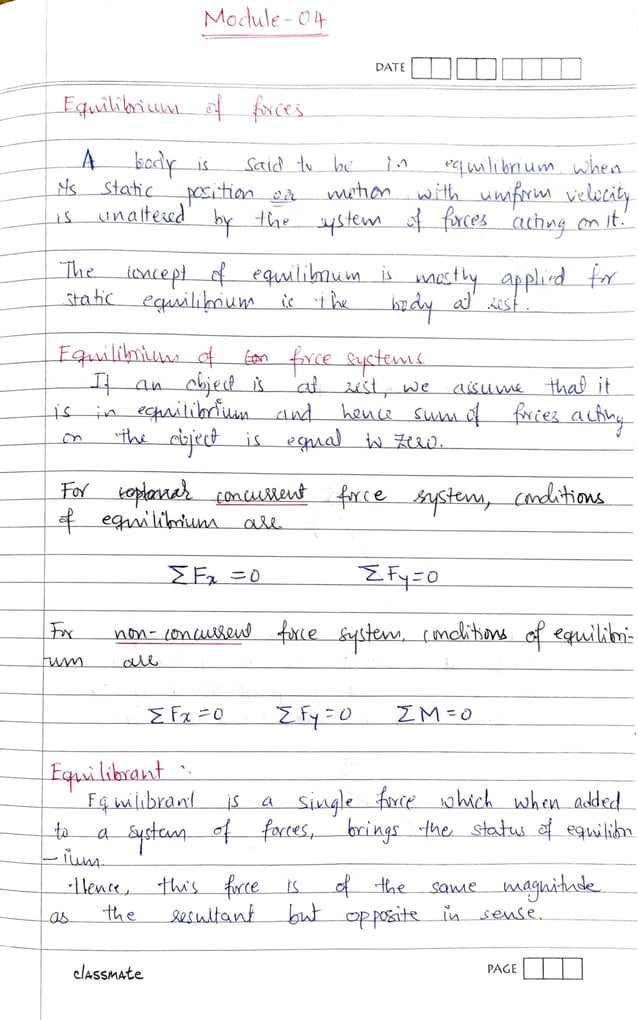 Module-04
DATE
Equilibrium of forces
A body is said to be in equilibrium when
its static position or motion with uniform velocity
is unaltered by the system of forces acting on it.
The concept of equilibrium is mostly applied for
static equilibrium ie the body at rest.
Equilibrium of force systems
If an object is at rest, we assume that it
is in equilibrium and hence sum of forces acting
on the object is equal to zero.
For coplanar concurrent force system, conditions
of equilibrium are
ΣFx = 0 ΣFy = 0
For non-concurrent force system, conditions of equilibri-
-um are
ΣFx = 0 ΣFy = 0 ΣM = 0
Equilibrant :-
Equilibrant is a single force which when added
to a system of forces, brings the status of equilibri
-ium.
Hence, this force is of the same magnitude
as the resultant but opposite in sense.
classmate
PAGE